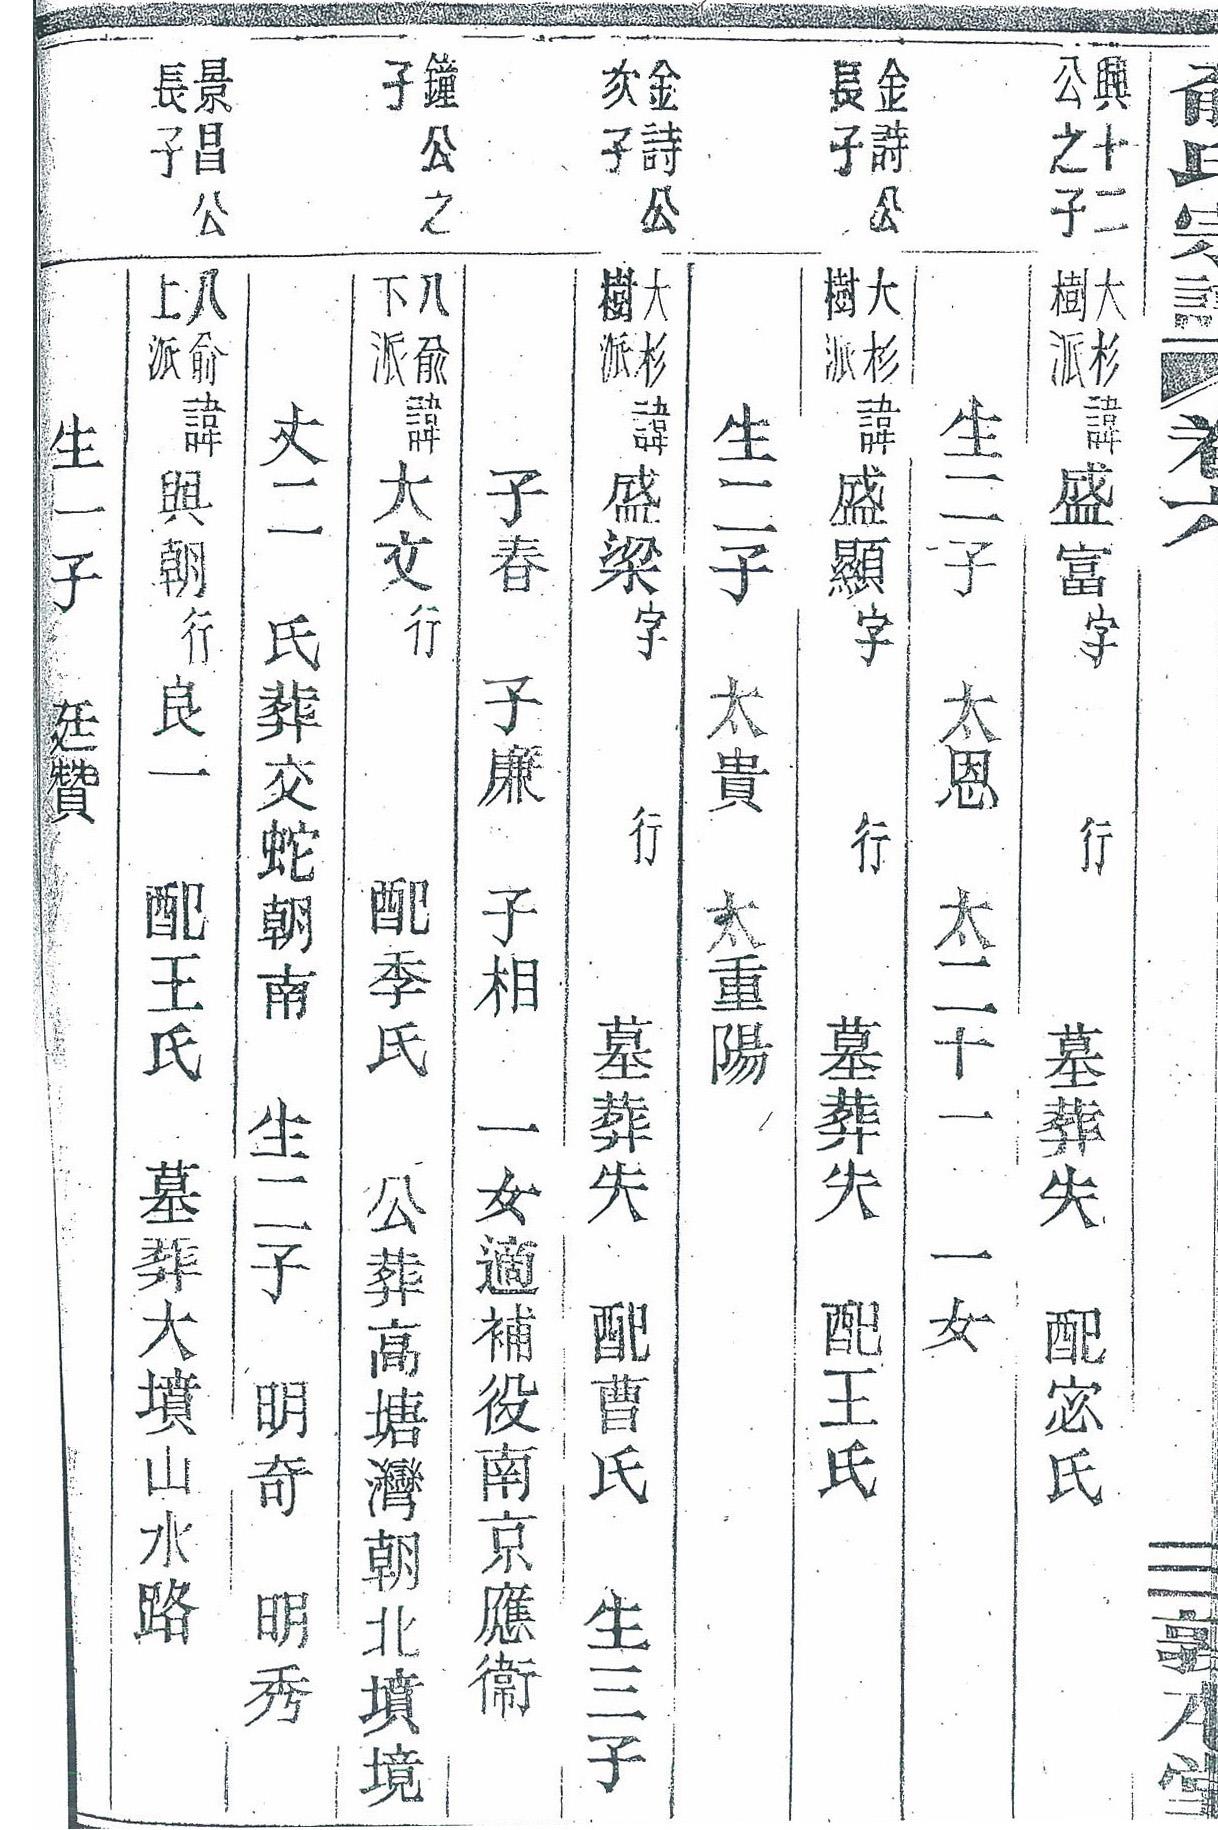 俞氏宗譜 卷六 三 敦本堂
興十二公之子
大杉樹派 諱盛富字 行 墓葬失 配宓氏
生二子 太恩 太二十一 一女
金詩公長子
大杉樹派 諱盛顯字 行 墓葬失 配王氏
生二子 太貴 太重陽
金詩公次子
大杉樹派 諱盛梁字 行 墓葬失 配曹氏 生三子
子春 子廉 子相 一女適補役南京應衞
鐘公之子
八俞下派 諱大文行 配季氏 公葬高塘灣朝北墳境
丈二 氏葬交蛇朝南 生二子 明奇 明秀
景昌公長子
八俞上派 諱興朝行良一 配王氏 墓葬大墳山水路
生一子 廷贊